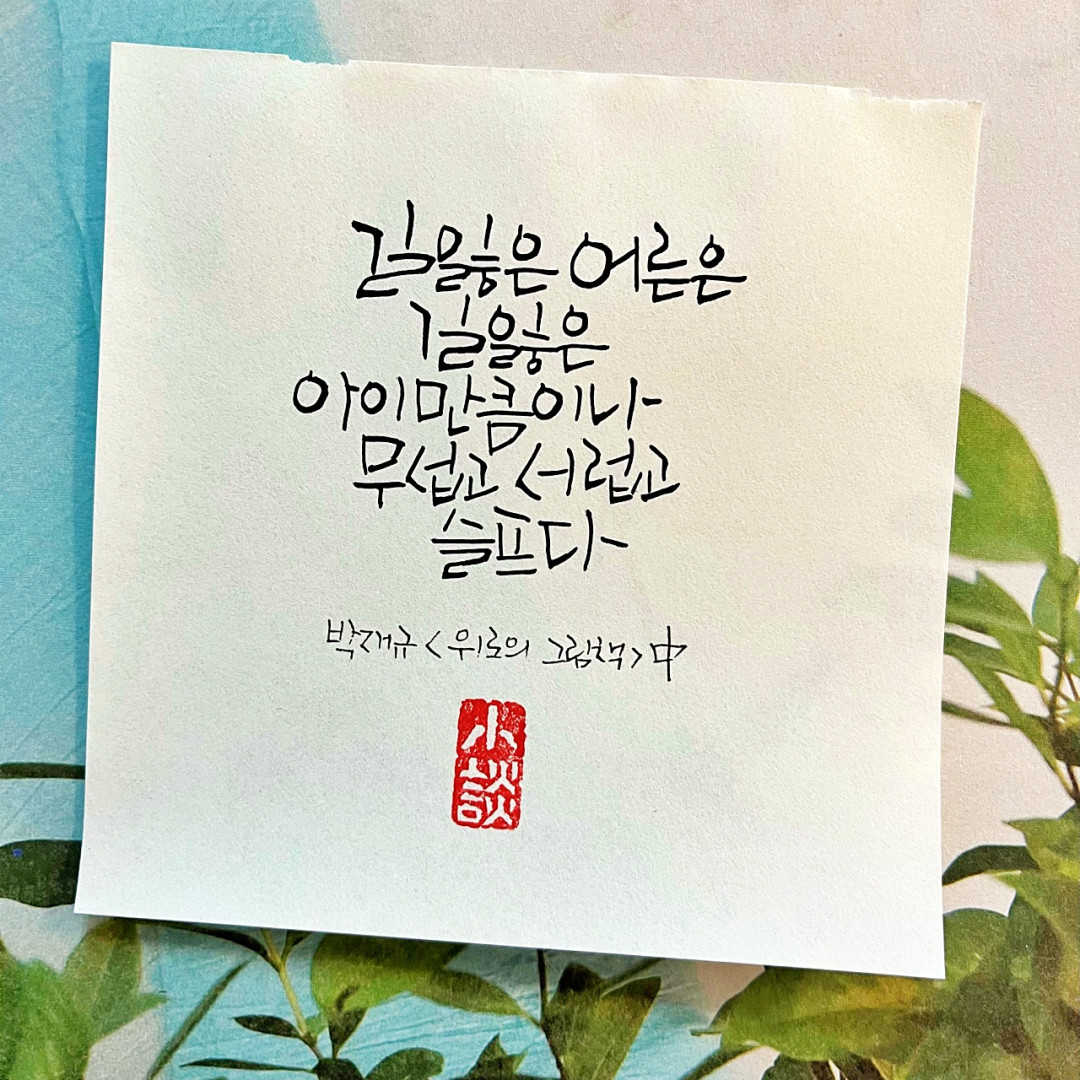 길 잃은 어른은
길 잃은
아이만큼이나
무섭고 서럽고
슬프다
박재규 <위로의 그림책> 中
小
談